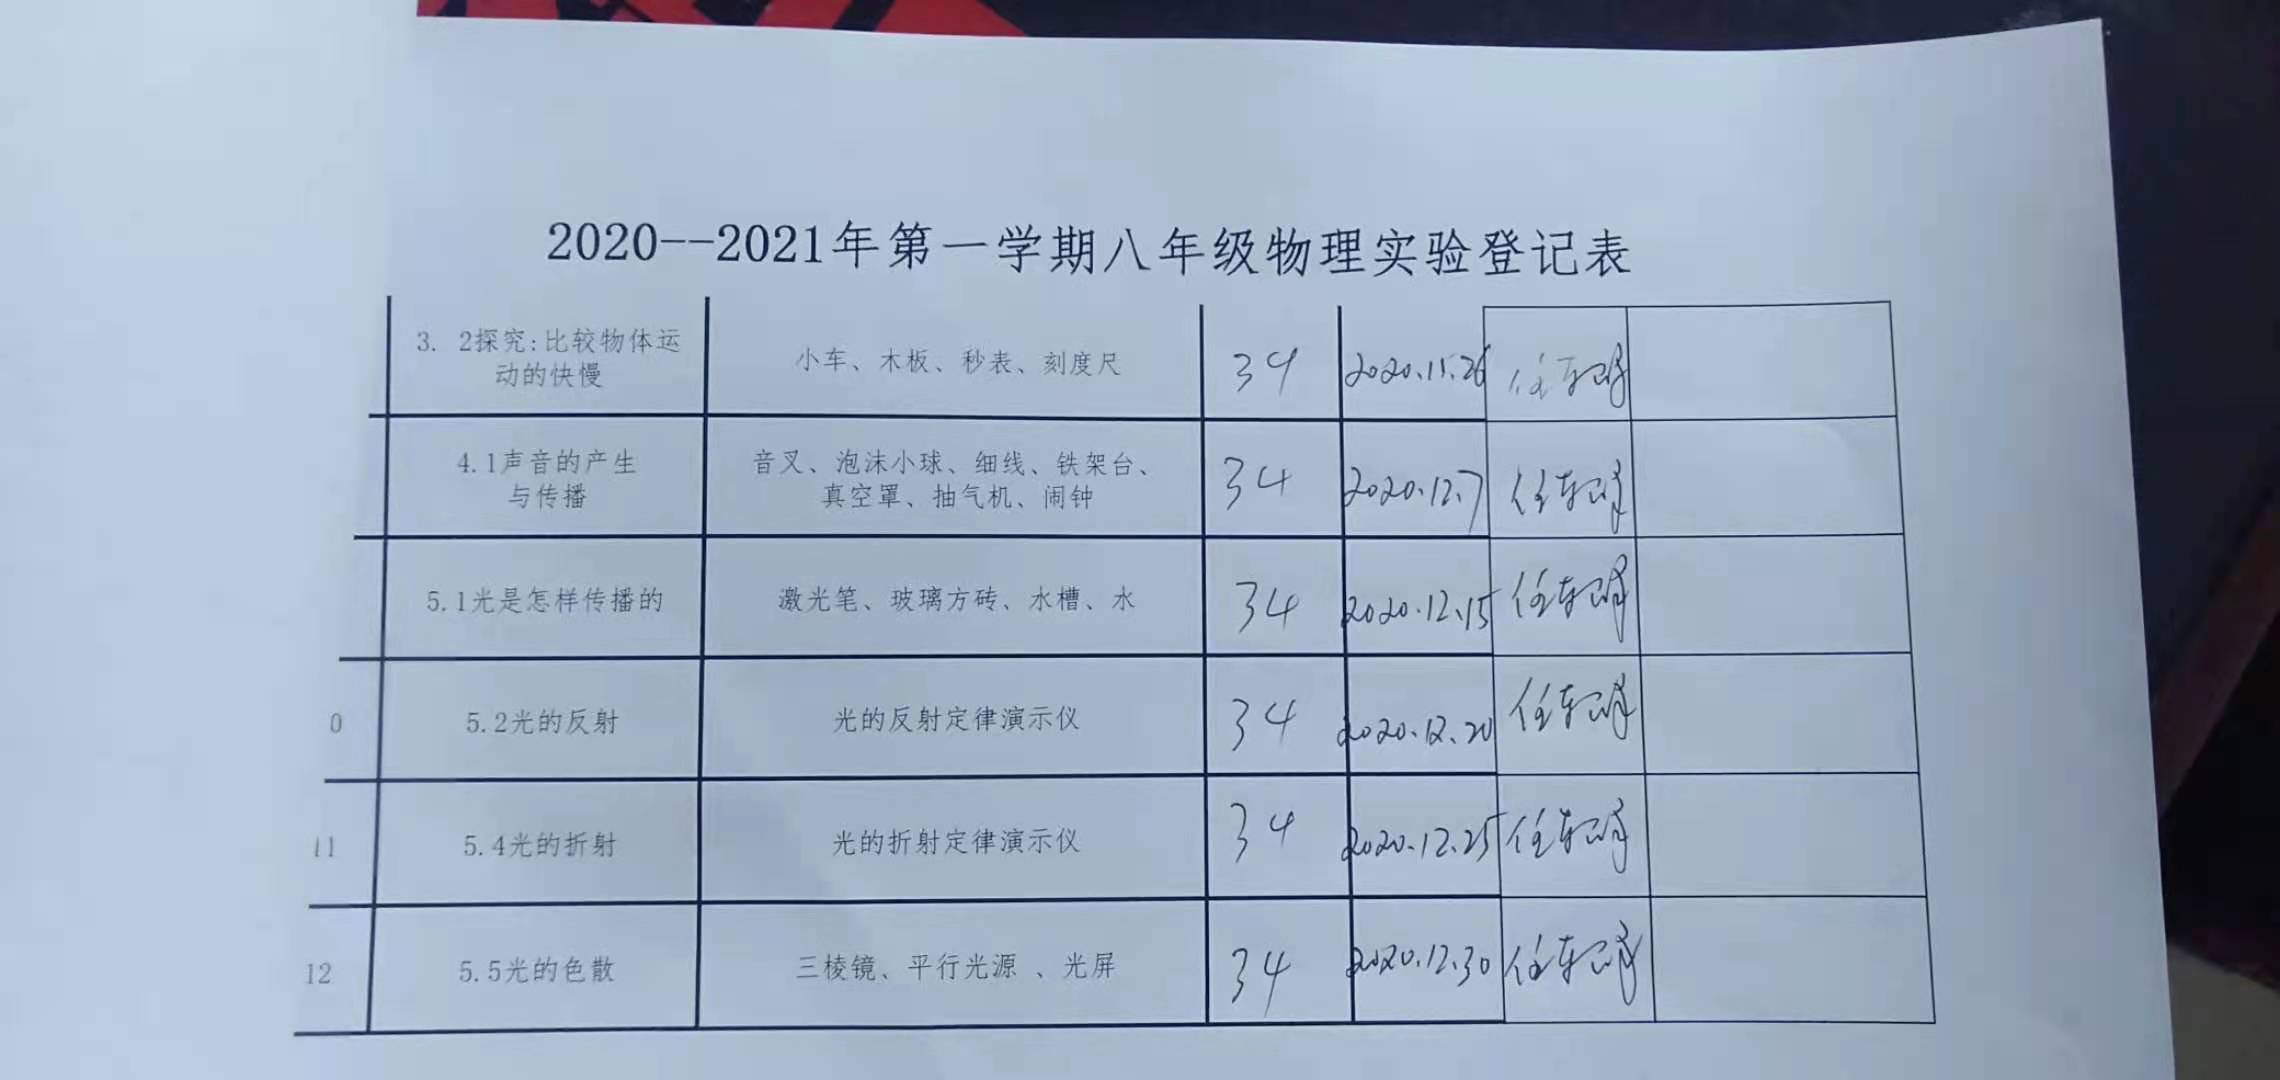 2020--2021年第一学期八年级物理实验登记表
3. 2探究:比较物体运
动的快慢
小车、木板、秒表、刻度尺
34
2020.11.26
4.1声音的产生
与传播
音叉、泡沫小球、细线、铁架台、
真空罩、抽气机、闹钟
34
2020.12.7
5.1光是怎样传播的
激光笔、玻璃方砖、水槽、水
34
2020.12.15
0
5.2光的反射
光的反射定律演示仪
34
2020.12.20
11
5.4光的折射
光的折射定律演示仪
34
2020.12.25
12
5.5光的色散
三棱镜、平行光源 、光屏
34
2020.12.30